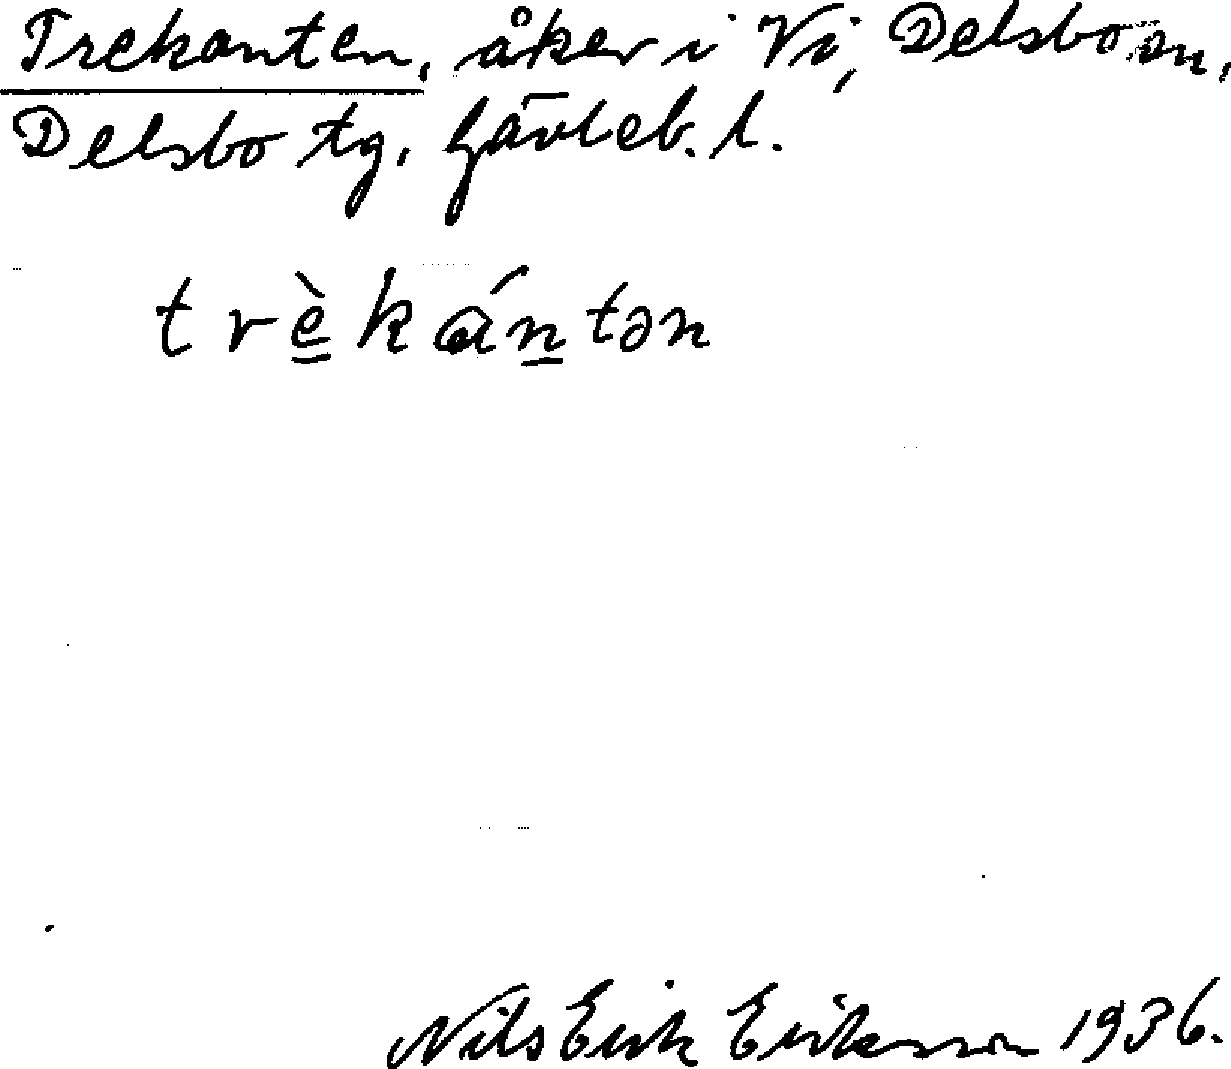 Trekanten, åker i Vi, Delsbo sn,
Delsbo tg, Gävleb. l.
trèkántən
Nils Erik Eriksson 1936.